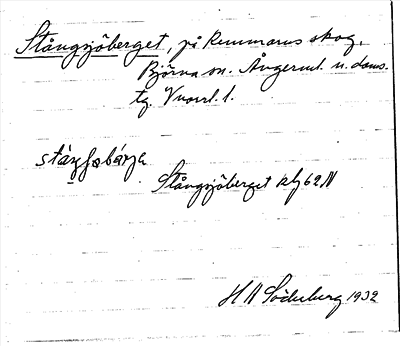 Stångsjöberget, på Remmarns skog,
Björna sn. Ångerml. n. doms.
tg. Vnorrl. l.
Stångsjöberget klg 62 N
H N Söderberg 1932